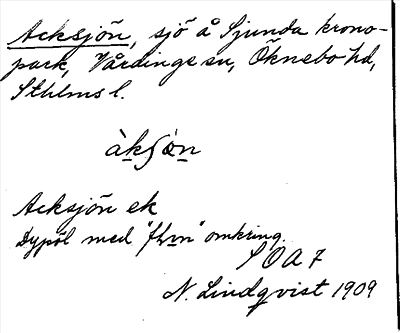 Acksjön, sjö å Sjunda krono-
park, Vårdinge sn, Öknebo hd,
Sthlms l.
àkʃòn
Acksjön ek
Dypöl med "flyn" omkring.
SOA 7
N. Lindqvist 1909